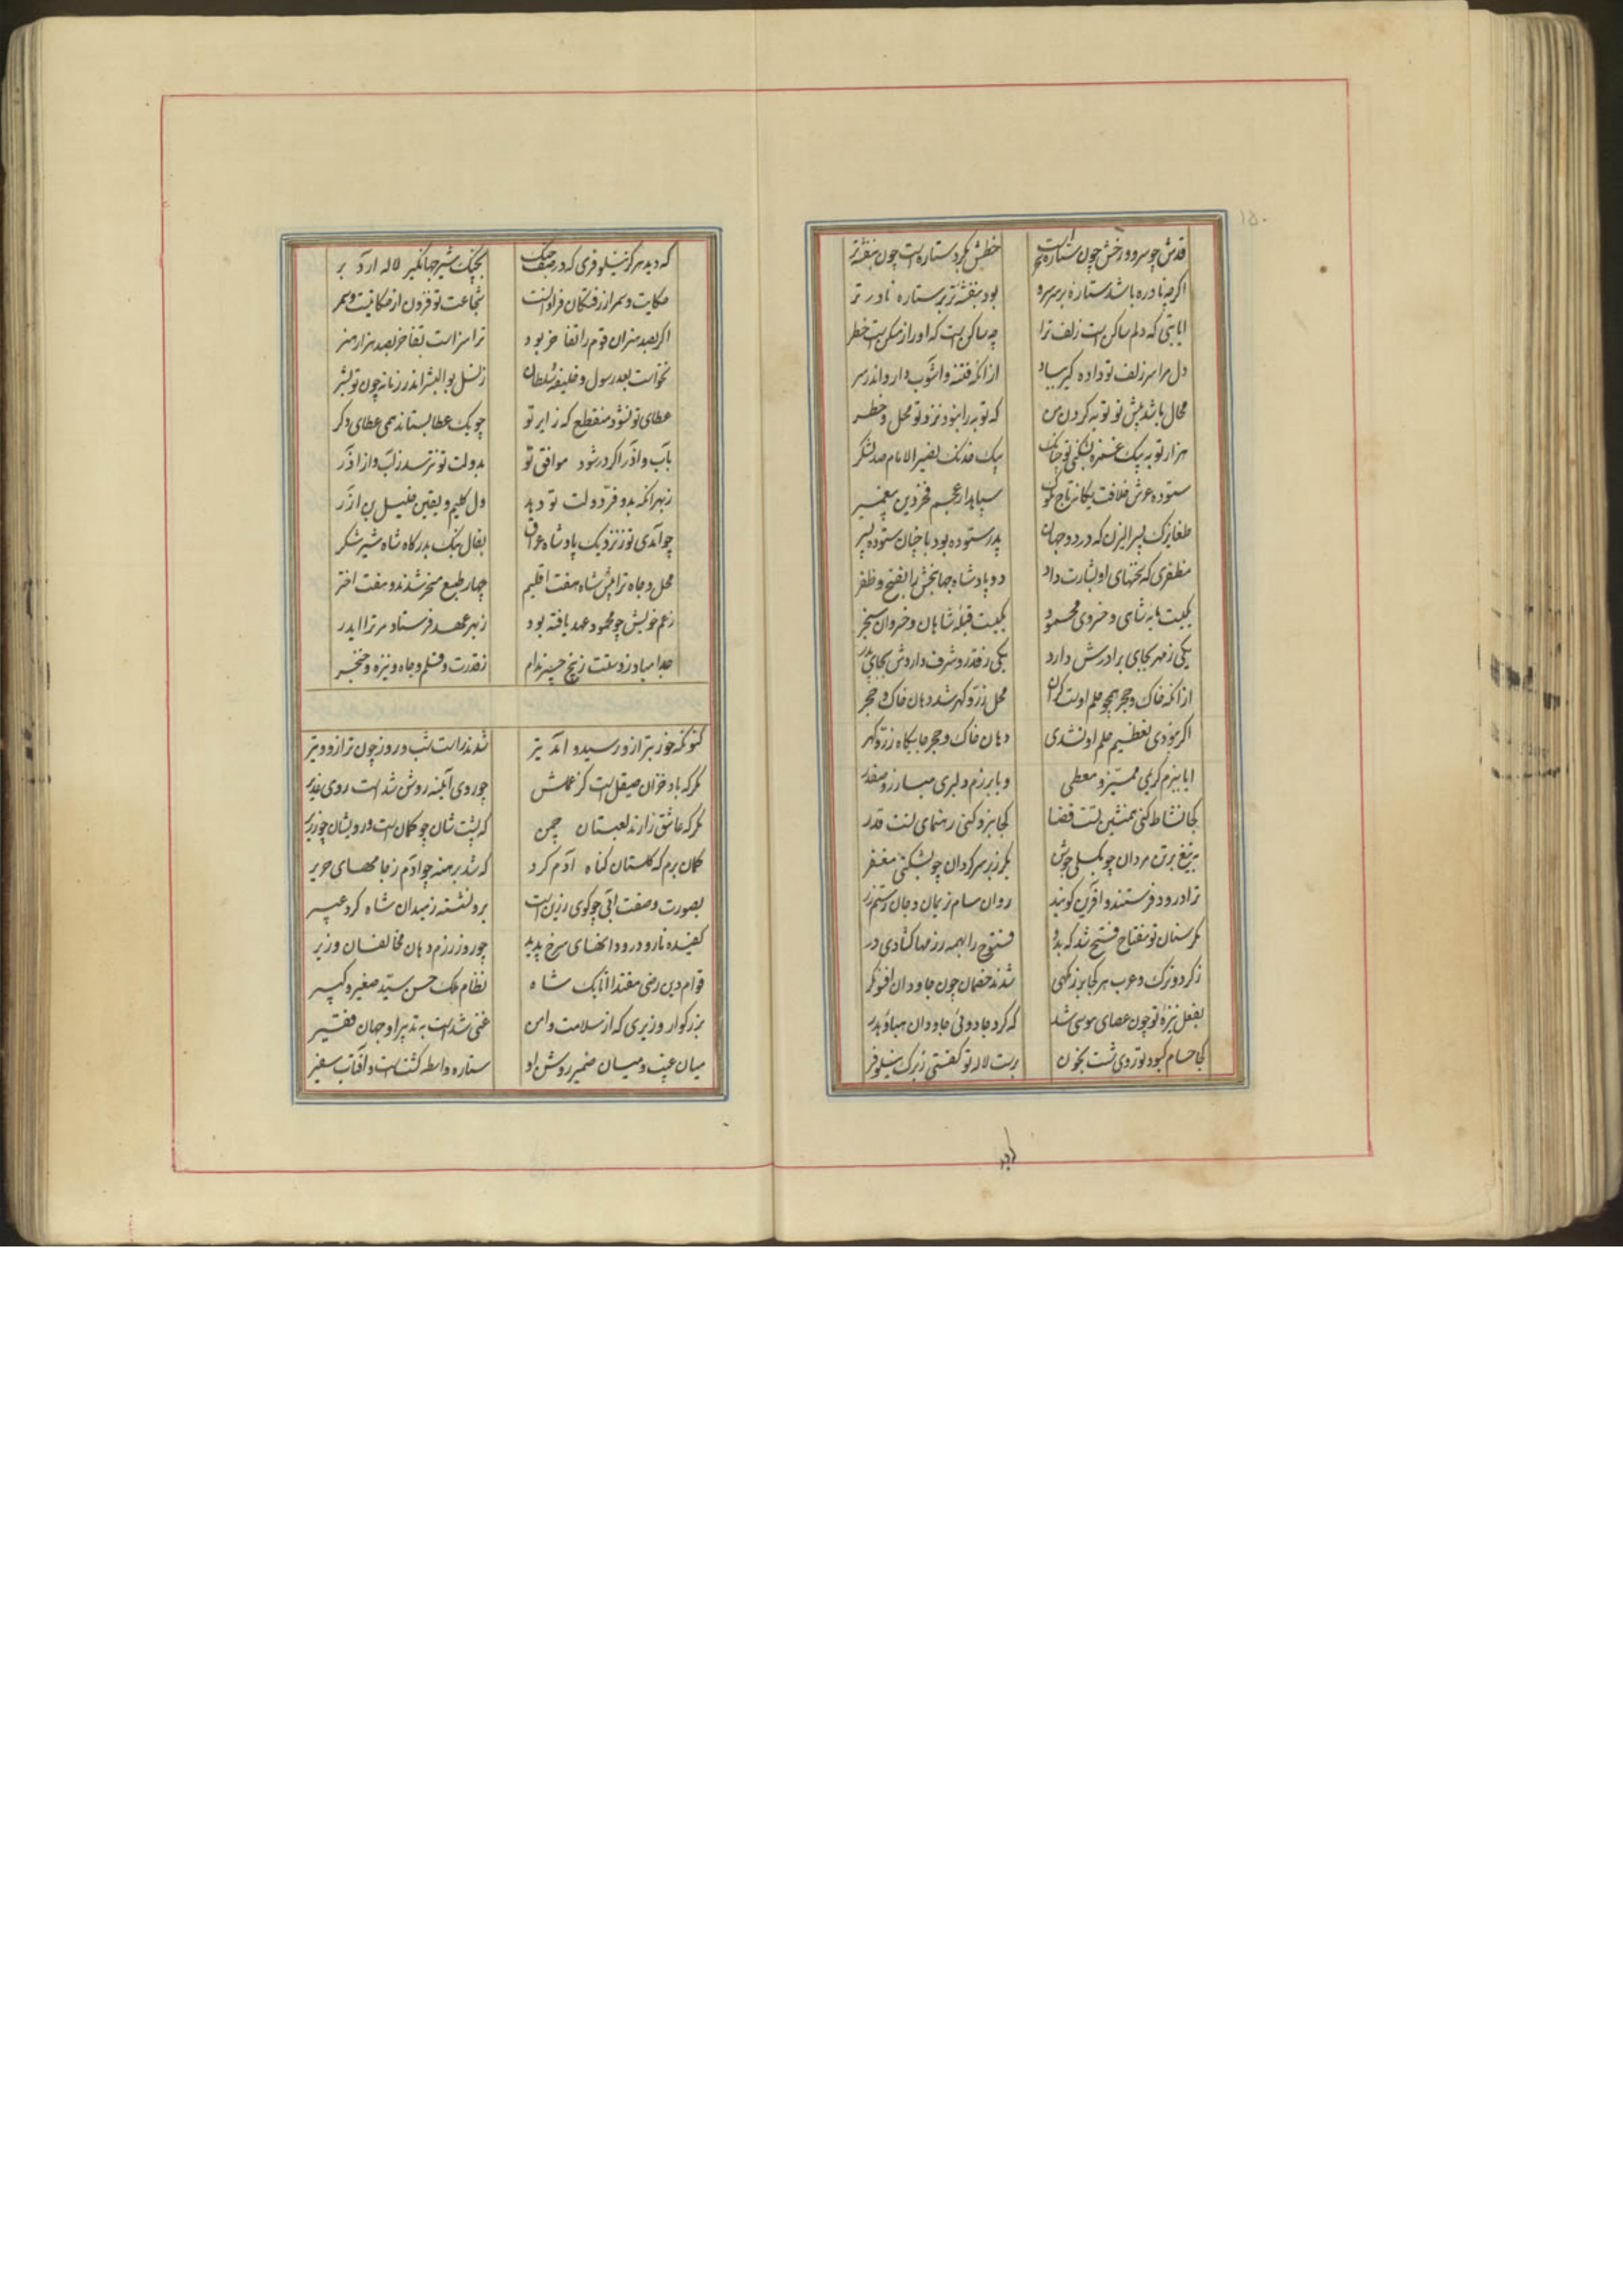 ۱۵۰
قدش چو سرو و رخش چون ستاره است خطش بگرد ستاره است چون بنفشه تر
اگرچه نادره باشد ستاره بر سر سرو بود بنفشه تر بر ستاره نادر تر
ایا بتی که دلم ساکن است زلف ترا چه ساکن است که او را ز مسکن است خطر
دل مرا سر زلف تو داد
از آنکه فتنه و آشوب دارد اندر سر
محال باشد پیش تو توبه کردن من که توبه را نبود نزد تو محل و خطر
هزار توبه بیک غمزه بشکنی تو چنانک بیک خدنگ نصیر الانام صد لشکر
ستوده عرش خلافت یگانه تاج ملوک سپاهدار عجم فخر دین پیغمبر
طغایرک پسر الیزن که در دو جهان پدر ستوده بود با چنان ستوده پسر
مظفری که بختهای او بشارت داد دو پادشاه جهانبخش را بفتح و ظفر
یکیست مایه شاهی و خسروی محمود یکیست قبله شاهان و خسروان سنجر
یکی ز مهر بجای برادرش دارد یکی ز قدر و شرف داردش بجای پدر
از آنکه خاک و حجر همچو حلم اوست گران محل زر و گهر شد دهان خاک و حجر
اگر نبودی تعظیم حلم او نشدی دهان خاک و حجر جایگاه زر و گهر
ایا ببزم کریمی ممیز و معطی و یا برزم دلیری مبارز و صفدر
کجا نشاط کنی همنشین تست قضا کجا نبرد کنی رهنمای تست قدر
به تیغ بر تن مردان چو بگسلی جوشن بگرز بر سر گردان چو بشکنی مغفر
ترا درود فرستند و آفرین گویند روان سام نریمان و جان رستم زر
مگر سنان تو مفتاح فتح شد که بدو فتوح را بهمه رزمها گشادی در
ز کرد و ترک و عرب هر کجا برزمگهی شدند خصمان چون جاودان افسونگر
بفعل نیزه تو چون عصای موسی شد که کرد جادوئی جاودان هبا و هدر
کجا حسام کبود تو روی شست بخون برست لاله تو گفتی ز برگ نیلوفر
که دید هرگز نیلوفری که در صف جنگ بچنگ شیر جهانگیر لاله آرد بر
حکایت و سمر از رفتگان فراوانست شجاعت تو فزون از حکایتست و سمر
اگر بصد هنران قوم را تفاخر بود ترا سزاست تفاخر بصد هزار هنر
نخواست بعد رسول و خلیفه و سلطان ز نسل بوالبشر اندر زمانه چون تو بشر
عطای تو نشود منقطع که زایر تو چو یک عطا بستاند همی عطای دگر
بآب و آذر اگر در شود موافق تو بدولت تو نترسد ز آب و از آذر
ز بهر آنکه بدو فر دولت تو دهد دل کلیم و یقین خلیل بن آزر
چو آمدی تو ز نزدیک پادشاه عراق بفال نیک بدرگاه شاه شیر شکر
محل و جاه ترا پیش شاه هفت اقلیم چهار طبع مسخر شدند و هفت اختر
ز عم خویش چو محمود عهد یافته بود ز بهر عهد فرستاد مر ترا ایدر
جدا مباد ز دستت ز پنج چیز مدام ز قدرت و قلم و جاه و نیزه و خنجر
کنون که خور بترازو رسید و آمد تیر شدند راست شب و روز چون ترازو و تیر
مگر که باد خزان صیقل است کز عملش چو روی آینه روشن شد است روی غدیر
مگر که عاشق زارند لعبتان چمن که پشت شان چو کمان است و رویشان چو زریر
گمان برم که گلستان گناه آدم کرد که شد برهنه چو آدم ز جامهای حریر
بصورت و صفت آبی چو گوی زرین است برو نشسته ز میدان شاه گرد عبیر
کفیده نار و درو دانهای سرخ پدید چو روز رزم دهان مخالفان وزیر
قوام دین رضی مقتدا اتابک شاه نظام ملک حسن سید صغیر و کبیر
بزرگوار وزیری که از سلامت و امن غنی شد است به تدبیر او جهان فقیر
میان غیب و میان ضمیر روشن او ستاره واسطه گشت است و آفتاب سفیر